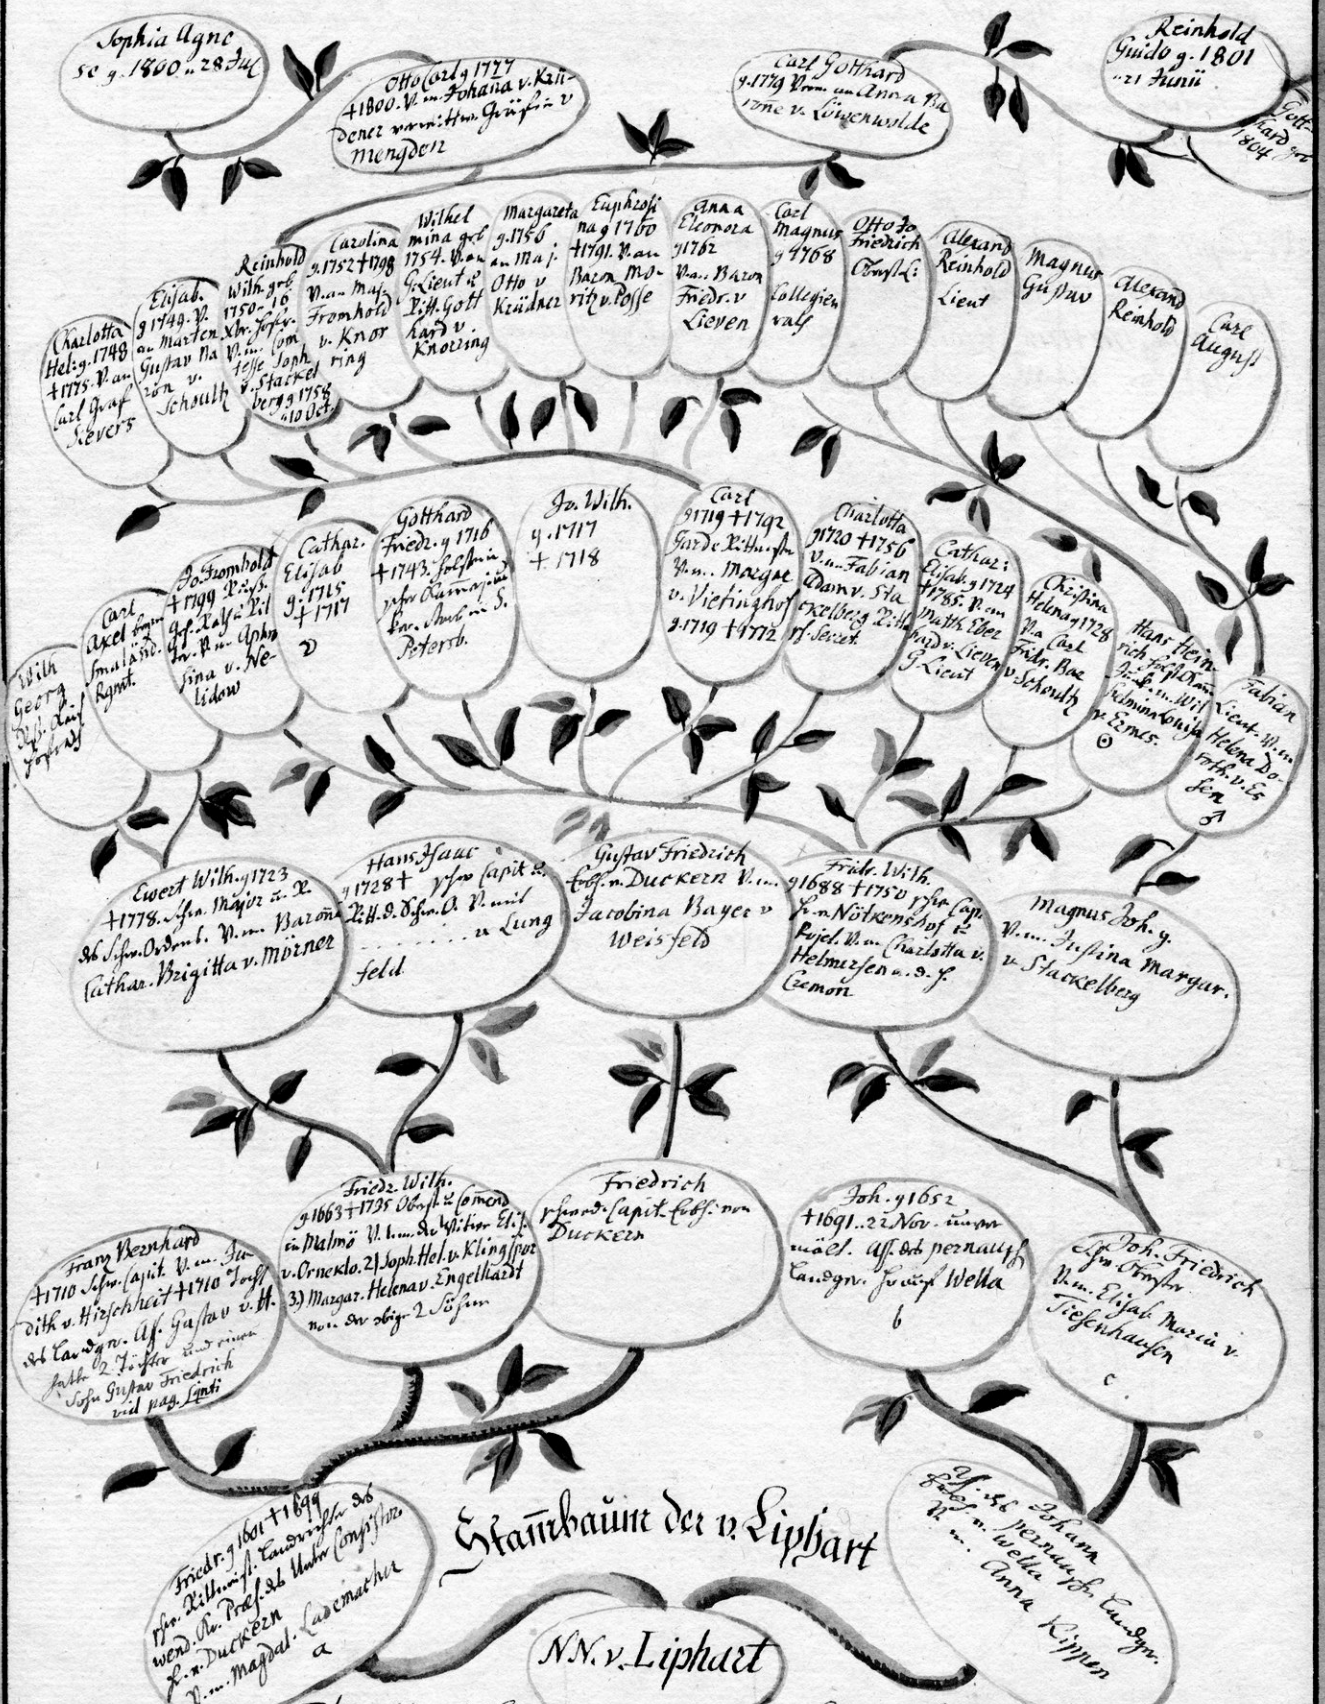 Sophia Agne
se g. 1800 .. 28 Jul
Otto Carl g 1777
+1800. V. m. Johana v. Krü-
dener verwittw. Gräfin v
Mengden
Carl Gotthard
g. 1779 Verm. an Anna Ba
rone v. Löwenwolde
Reinhold
Guido g. 1801
.. 21 Junii
Gott-
hard geb
1804
Charlotta
Hel: g. 1748
+1775. V. an
Carl Graf
Sievers
Elisab.
g 1749. V.
an Marten
Gustav Ba
ron v.
Schoultz
Reinhold
Wilh. geb
1750 - 16
V. m. Com
tesse Soph
v. Stackel
berg g 1758
.. 10 Oct.
Carolina
g. 1752 +1798
V. an Maj.
Fromhold
v. Knor
ring
Wilhel
mina geb
1754. V. an
G. Lieut u
Ritt. Gott
hard v
Knorring
Margareta
g. 1756
an Maj.
Otto v
Krüdner
Euphrosi
na g 1760
+1791. V. an
Baron Mo-
ritz v. Posse
Anna
Eleonora
g 1762
V. an Baron
Friedr. v
Lieven
Carl
Magnus
g 1768
Collegien
rath
Otto Jo
Friedrich
Obrist L:
Alexand
Reinhold
Lieut
Magnus
Gustav
Alexand
Reinhold
Carl
August
Wilh
Georg
Carl
Axel
Smaländ.
Rgmt.
Jo. Fromhold
+1799 Russ.
sina v. Ne-
lidow
Cathar.
Elisab
g. 1715
+ 1717
Gotthard
Friedr. g 1716
+1743. Holstein
Petersb.
Jo. Wilh.
g. 1717
+. 1718
Carl
g 1719 +1792
Garde Rittmstr
V. m. Margar
v. Vietinghof
g. 1719 +1772
Charlotta
g 1720 +1756
V. an Fabian
Adam v. Sta
ckelberg Ritt
rf. Secret.
Cathar:
Elisab. g 1724
+1785. V. an
Matth Eber
hard v. Lieven
G. Lieut
Christina
Helena g 1728
V. a Carl
Fridr. Bar
v Schoultz
Hans Hein-
rich
helmina Louisa
v. Ermes.
☉
Fabian
Lieut. V. m
Helena Do-
roth. v. Es
sen
♂
Ewert Wilh. g 1723
+1778. Schw. Major u. R.
des Schw. Ordens. V. m. Barone
Cathar. Brigitta v. Mörner
Hans Isaac
g 1728 + schw Capit u.
Ritt. d. Schw. O. V. mit
. . . . . . . . v Lung
feld
Gustav Friedrich
Erbh. v. Duckern V. m.
Jacobina Bayer v
Weisfeld
Fridr. Wilh.
g 1688 +1750 schw Cap.
H. v. Nötkenshof u
Rojel. V. m Charlotta v.
Helmersen a. d. H.
Cremon
Magnus Joh. g.
V. m. Justina Margar.
v. Stackelberg
Franz Bernhard
+1710 Schw. Capit. V. m. Ju-
dith v. Hirschheit +1710 Tocht
des Landgr. Ass. Gustav v. H.
hatte 2 Töchter und einen
Sohn Gustav Friedrich
vid pag.
Friedr. Wilh.
g 1663 +1735 Oberst u Comend
in Malmö V. 1. m. der Witwe Elis.
v. Orneklo. 2) Soph. Hel. v. Klingspor
3.) Margar. Helena v. Engelhardt
von der obige 2 Söhne
Friedrich
schwed. Capit. Erbh. von
Duckern
Joh. g 1652
+1691 .. 22 Nov. unver
mält. Ass. des pernausch
Landger. H. auf Wella
b
Joh. Friedrich
Schw. Oberster
V. m. Elisab Maria v.
Tiesenhausen
c.
Friedr. g 1601 +1699
schw. Rittmeist. Landrichter des
wend. Kr. Praes. des Unter Consistor
H. v. Duckern
V. m. Magdal. Lademacher
a
Stam̄baum der v. Liphart
Johann
des pernausch Landger.
Erbh. v. Wella
V. m. Anna Kippen
NN. v. Liphart